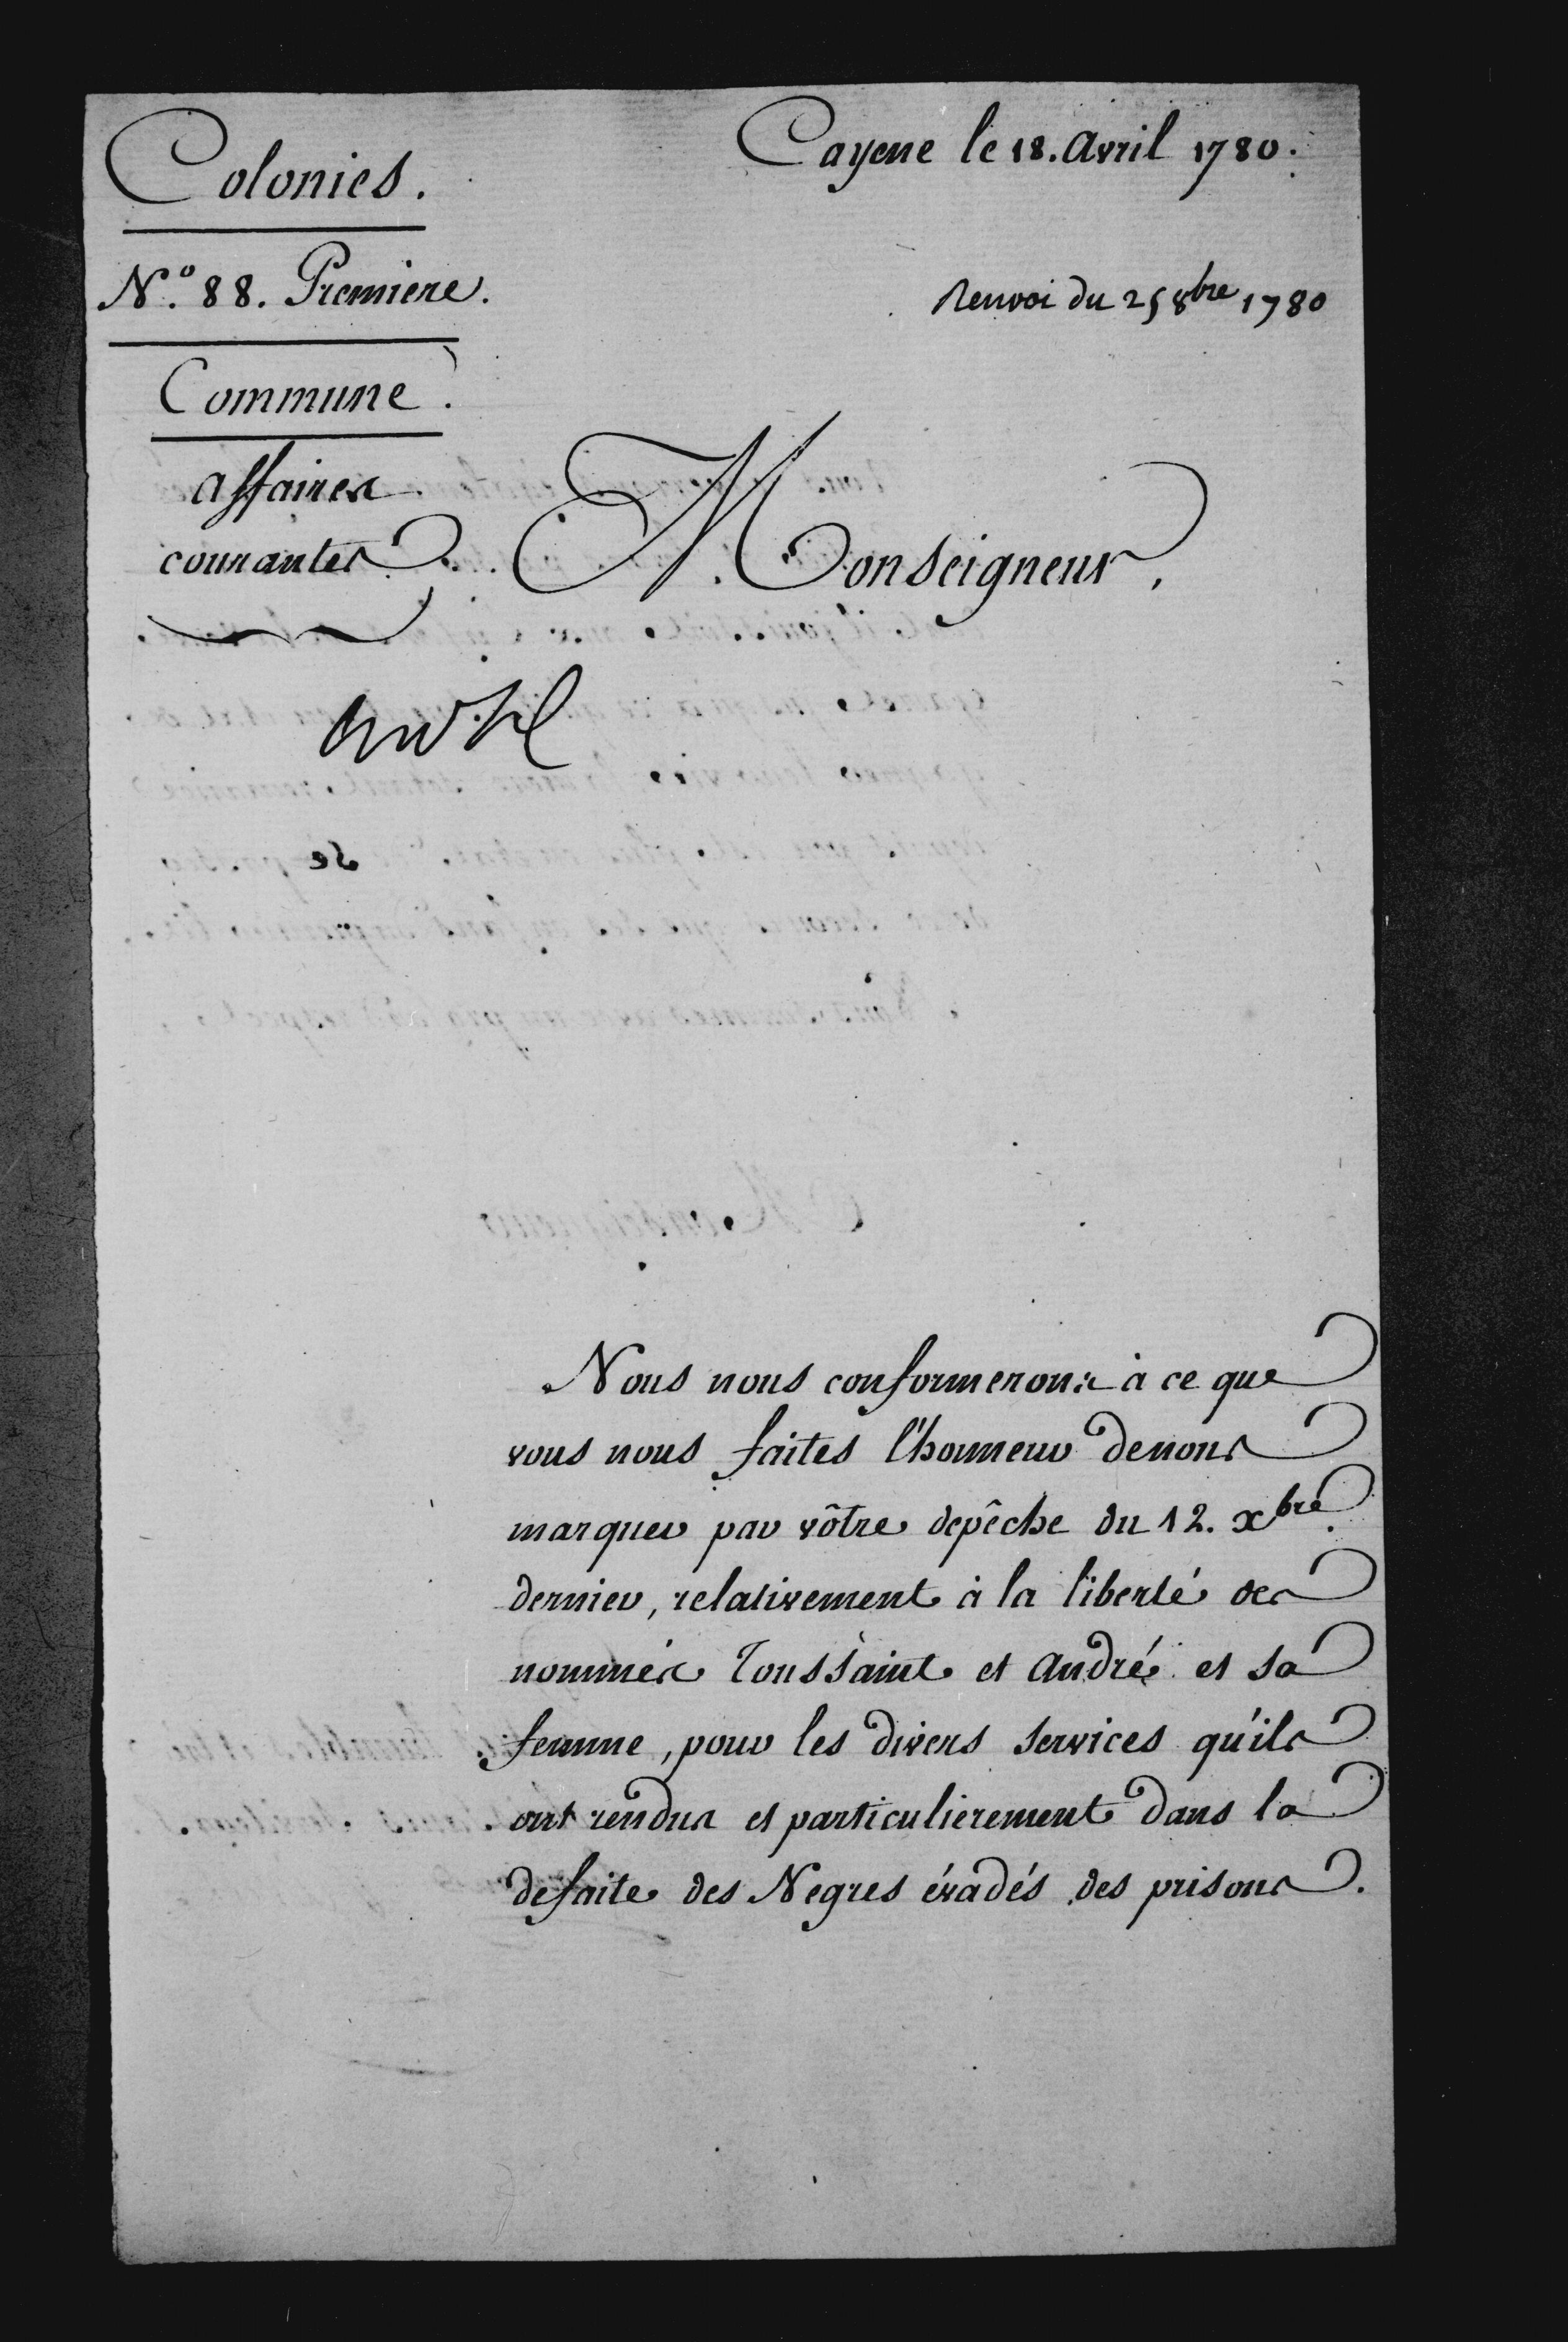 Colonies.
Cayene le 18. avril 1780.
N.º 88. Premiere.
Renvoi du 25 8bre 1780
Commune.
affaires
courantes.
Monseigneur,
Nous nous conformerons à ce que
vous nous faites l'honneur de nous
marquer par vôtre depêche du 12. xbre.
dernier, relativement à la liberté des
nommés Toussaint et André et sa
femme, pour les divers services qu'ils
ont rendus et particulierement dans la
defaite des Negres évadés des prisons.